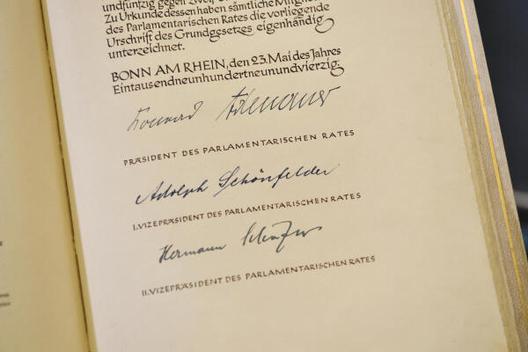 undfünfzig gegen zwölf
Zu Urkunde dessen haben sämtliche Mitglie
des Parlamentarischen Rates die vorliegende
Urschrift des Grundgesetzes eigenhändig
unterzeichnet.
BONN AM RHEIN, den 23. Mai des Jahres
Eintausendneunhundertneunundvierzig:
Konrad Adenauer
PRÄSIDENT DES PARLAMENTARISCHEN RATES
Adolph Schönfelder
I. VIZEPRÄSIDENT DES PARLAMENTARISCHEN RATES
Hermann Schäfer
II. VIZEPRÄSIDENT DES PARLAMENTARISCHEN RATES